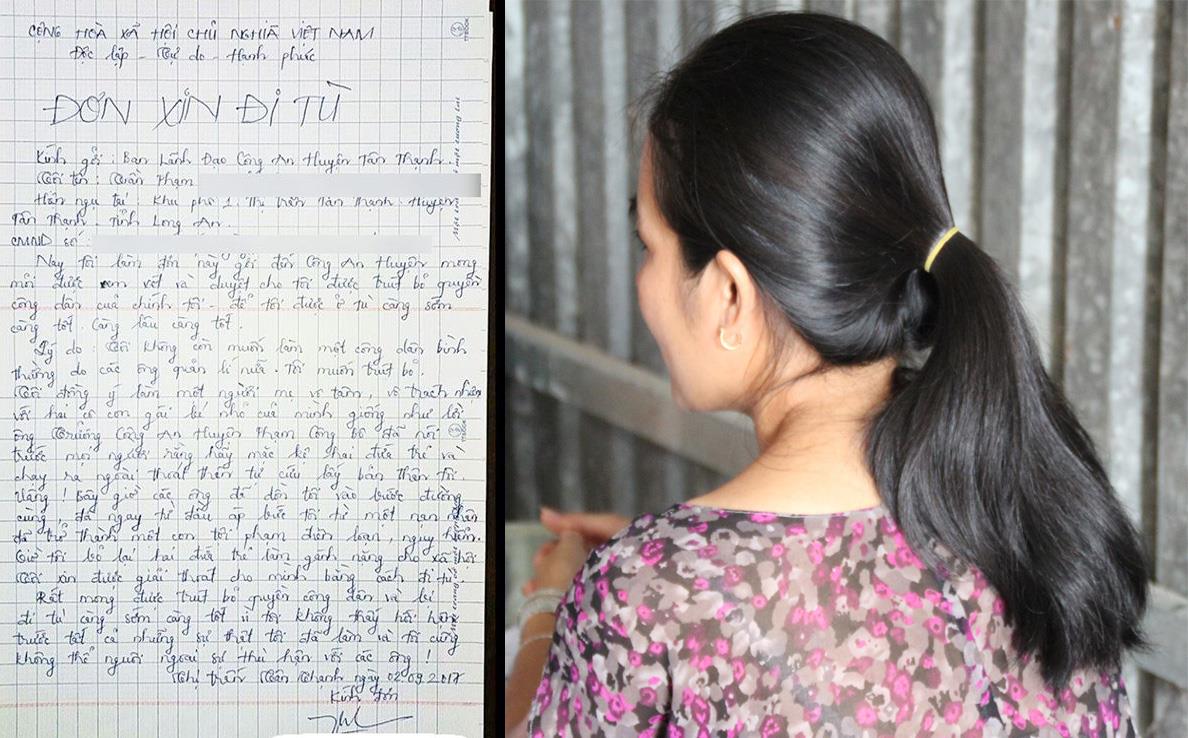 CỘNG HÒA XÃ HỘI CHỦ NGHĨA VIỆT NAM
Độc lập - Tự do - Hạnh phúc
ĐƠN XIN ĐI TÙ
Kính gởi : Ban Lãnh Đạo Công An Huyện Tân Thạnh.
Tôi tên : Trần Phạm
Hiện ngụ tại : Khu phố 1. Thị trấn Tân Thạnh. Huyện
Tân Thạnh. Tỉnh Long An.
CMND số :
Nay tôi làm đơn này gởi đến Công An Huyện mong
mỏi được xem xét và duyệt cho tôi được trút bỏ quyền
công dân của chính tôi - để tôi được ở tù càng sớm
càng tốt. Càng lâu càng tốt.
Lý do : Tôi không còn muốn làm một công dân bình
thường do các ông quản lí nữa. Tôi muốn trút bỏ.
Tôi đồng ý làm một người mẹ vô tâm, vô trách nhiệm
với hai cô con gái bé nhỏ của mình giống như lời
ông Trưởng Công An Huyện Phạm Công bố đã nói
trước mọi người rằng hãy mặc kệ hai đứa trẻ và
chạy ra ngoài thoát thân tự cứu lấy bản thân tôi.
Vâng ! Bây giờ các ông đã dồn tôi vào bước đường
cùng, đã ngay từ đầu áp bức tôi từ một nạn nhân
để trở thành một con tội phạm điên loạn, nguy hiểm.
Giờ tôi bỏ lại hai đứa trẻ làm gánh nặng cho xã hội
Tôi xin được giải thoát cho mình bằng cách đi tù.
Rất mong được trút bỏ quyền công dân và
đi tù càng sớm càng tốt vì tôi không thấy hối hận
trước tất cả những sự thật tôi đã làm và tôi cũng
không thể nguôi ngoai sự thù hận với các ông !
Thị trấn Tân Thạnh ngày 02.09.2017
Kính đơn